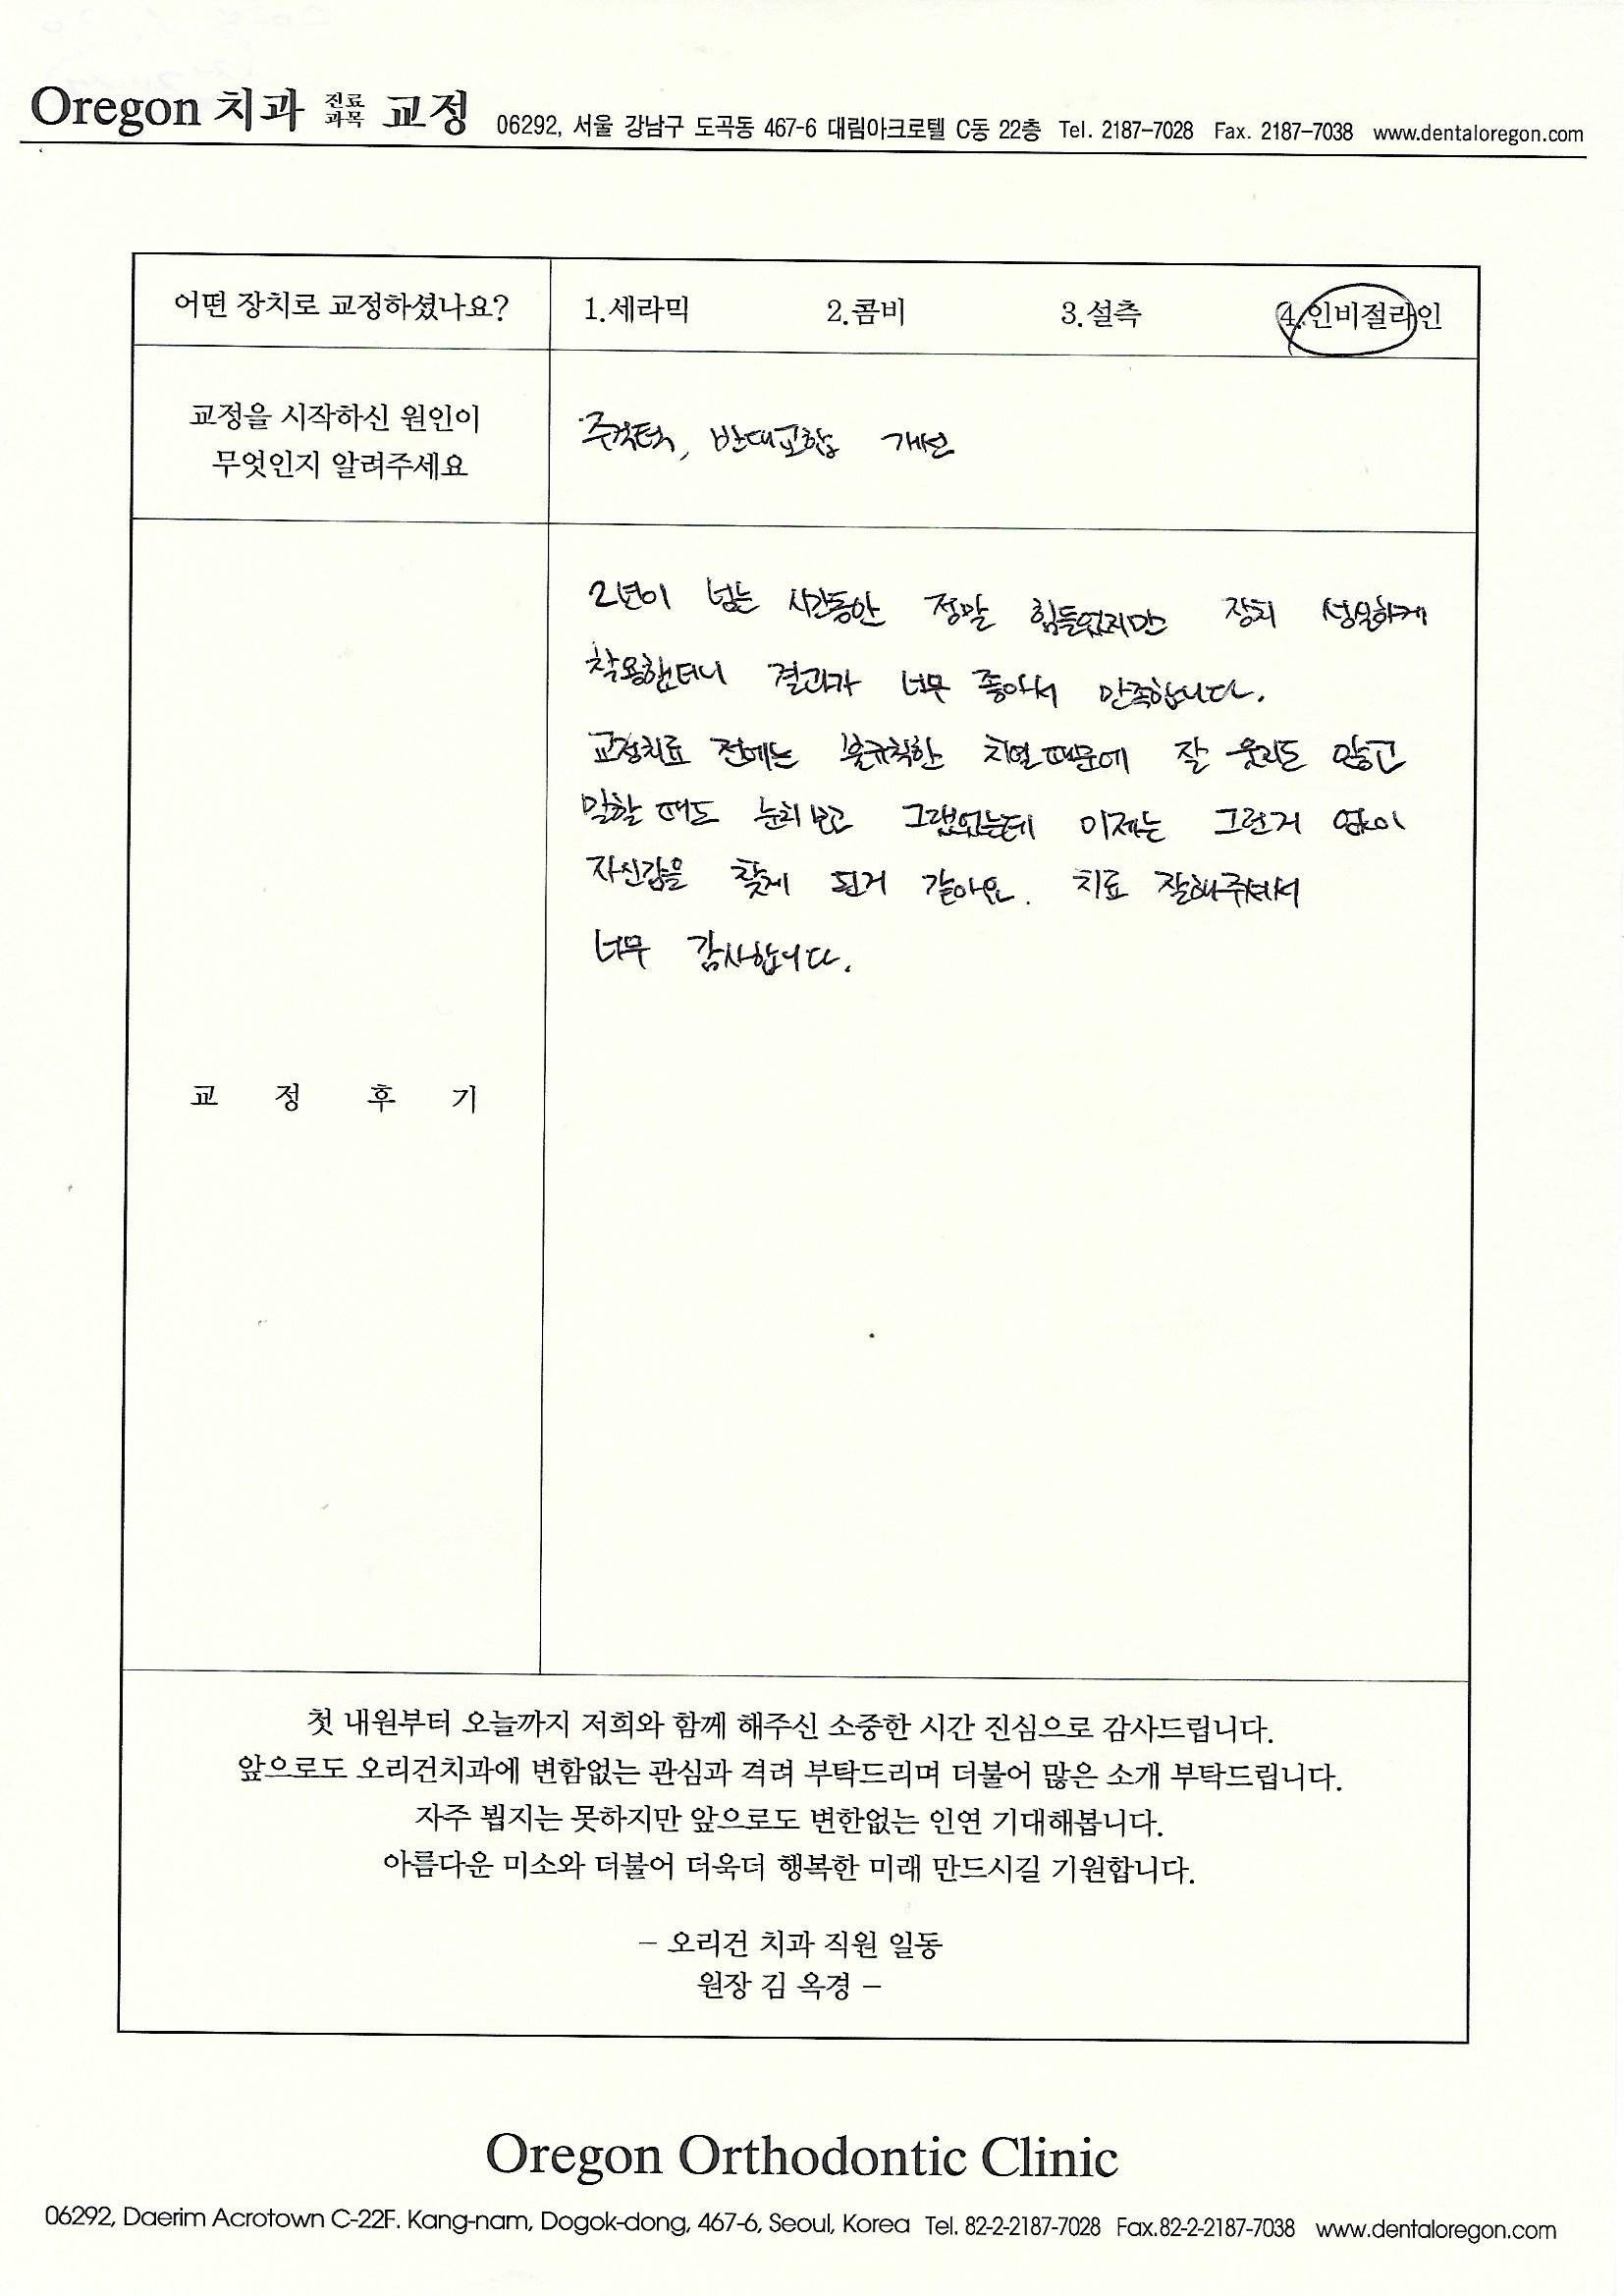 Oregon 치과 진료과목 교정 06292, 서울 강남구 도곡동 467-6 대림아크로텔 C동 22층 Tel. 2187-7028 Fax. 2187-7038 www.dentaloregon.com
어떤 장치로 교정하셨나요? 1.세라믹 2.콤비 3.설측 4.인비절라인
교정을 시작하신 원인이
무엇인지 알려주세요
주걱턱, 반대교합 개선
2년이 넘는 시간동안 정말 힘들었지만 장치 성실하게
착용했더니 결과가 너무 좋아서 만족합니다.
교정치료 전에는 불규칙한 치열때문에 잘 웃지도 않고
말할 때도 눈치보고 그랬었는데 이제는 그런거 없이
자신감을 찾게 된거 같아요. 치료 잘해주셔서
너무 감사합니다.
교 정 후 기
첫 내원부터 오늘까지 저희와 함께 해주신 소중한 시간 진심으로 감사드립니다.
앞으로도 오리건치과에 변함없는 관심과 격려 부탁드리며 더불어 많은 소개 부탁드립니다.
자주 뵙지는 못하지만 앞으로도 변한없는 인연 기대해봅니다.
아름다운 미소와 더불어 더욱더 행복한 미래 만드시길 기원합니다.
– 오리건 치과 직원 일동
원장 김 옥경 –
Oregon Orthodontic Clinic
06292, Daerim Acrotown C-22F. Kang-nam, Dogok-dong, 467-6, Seoul, Korea Tel. 82-2-2187-7028 Fax.82-2-2187-7038 www.dentaloregon.com